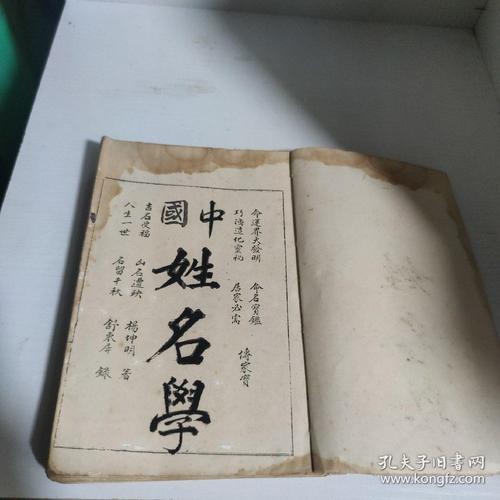 命運界大發明 命名寶鑑
巧洩造化靈秘 居家必需
傳家寶
中國
姓名學
吉名受福 凶名遭殃
人生一世 名留千秋
楊坤明 著
舒東屏 錄
孔夫子旧书网
www.kongfz.com